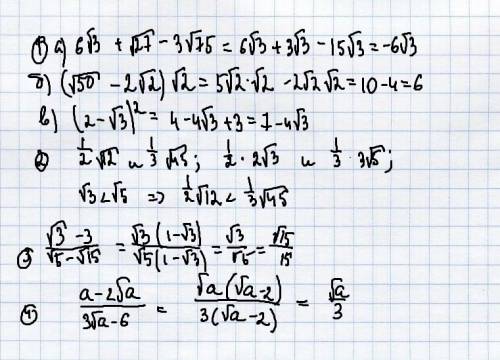 1) а) 6√3 + √27 - 3√75 = 6√3 + 3√3 - 15√3 = -6√3
б) (√50 - 2√2)√2 = 5√2·√2 - 2√2√2 = 10 - 4 = 6
в) (2 - √3)² = 4 - 4√3 + 3 = 7 - 4√3
2) 1/2 √12 и 1/3 √45; 1/2 · 2√3 и 1/3 · 3√5;
√3 < √5 => 1/2 √12 < 1/3 √45
3) (√3 - 3)/(√5 - √15) = √3(1 - √3)/√5(1 - √3) = √3/√5 = √15/15
4) (a - 2√a)/(3√a - 6) = √a(√a - 2)/3(√a - 2) = √a/3